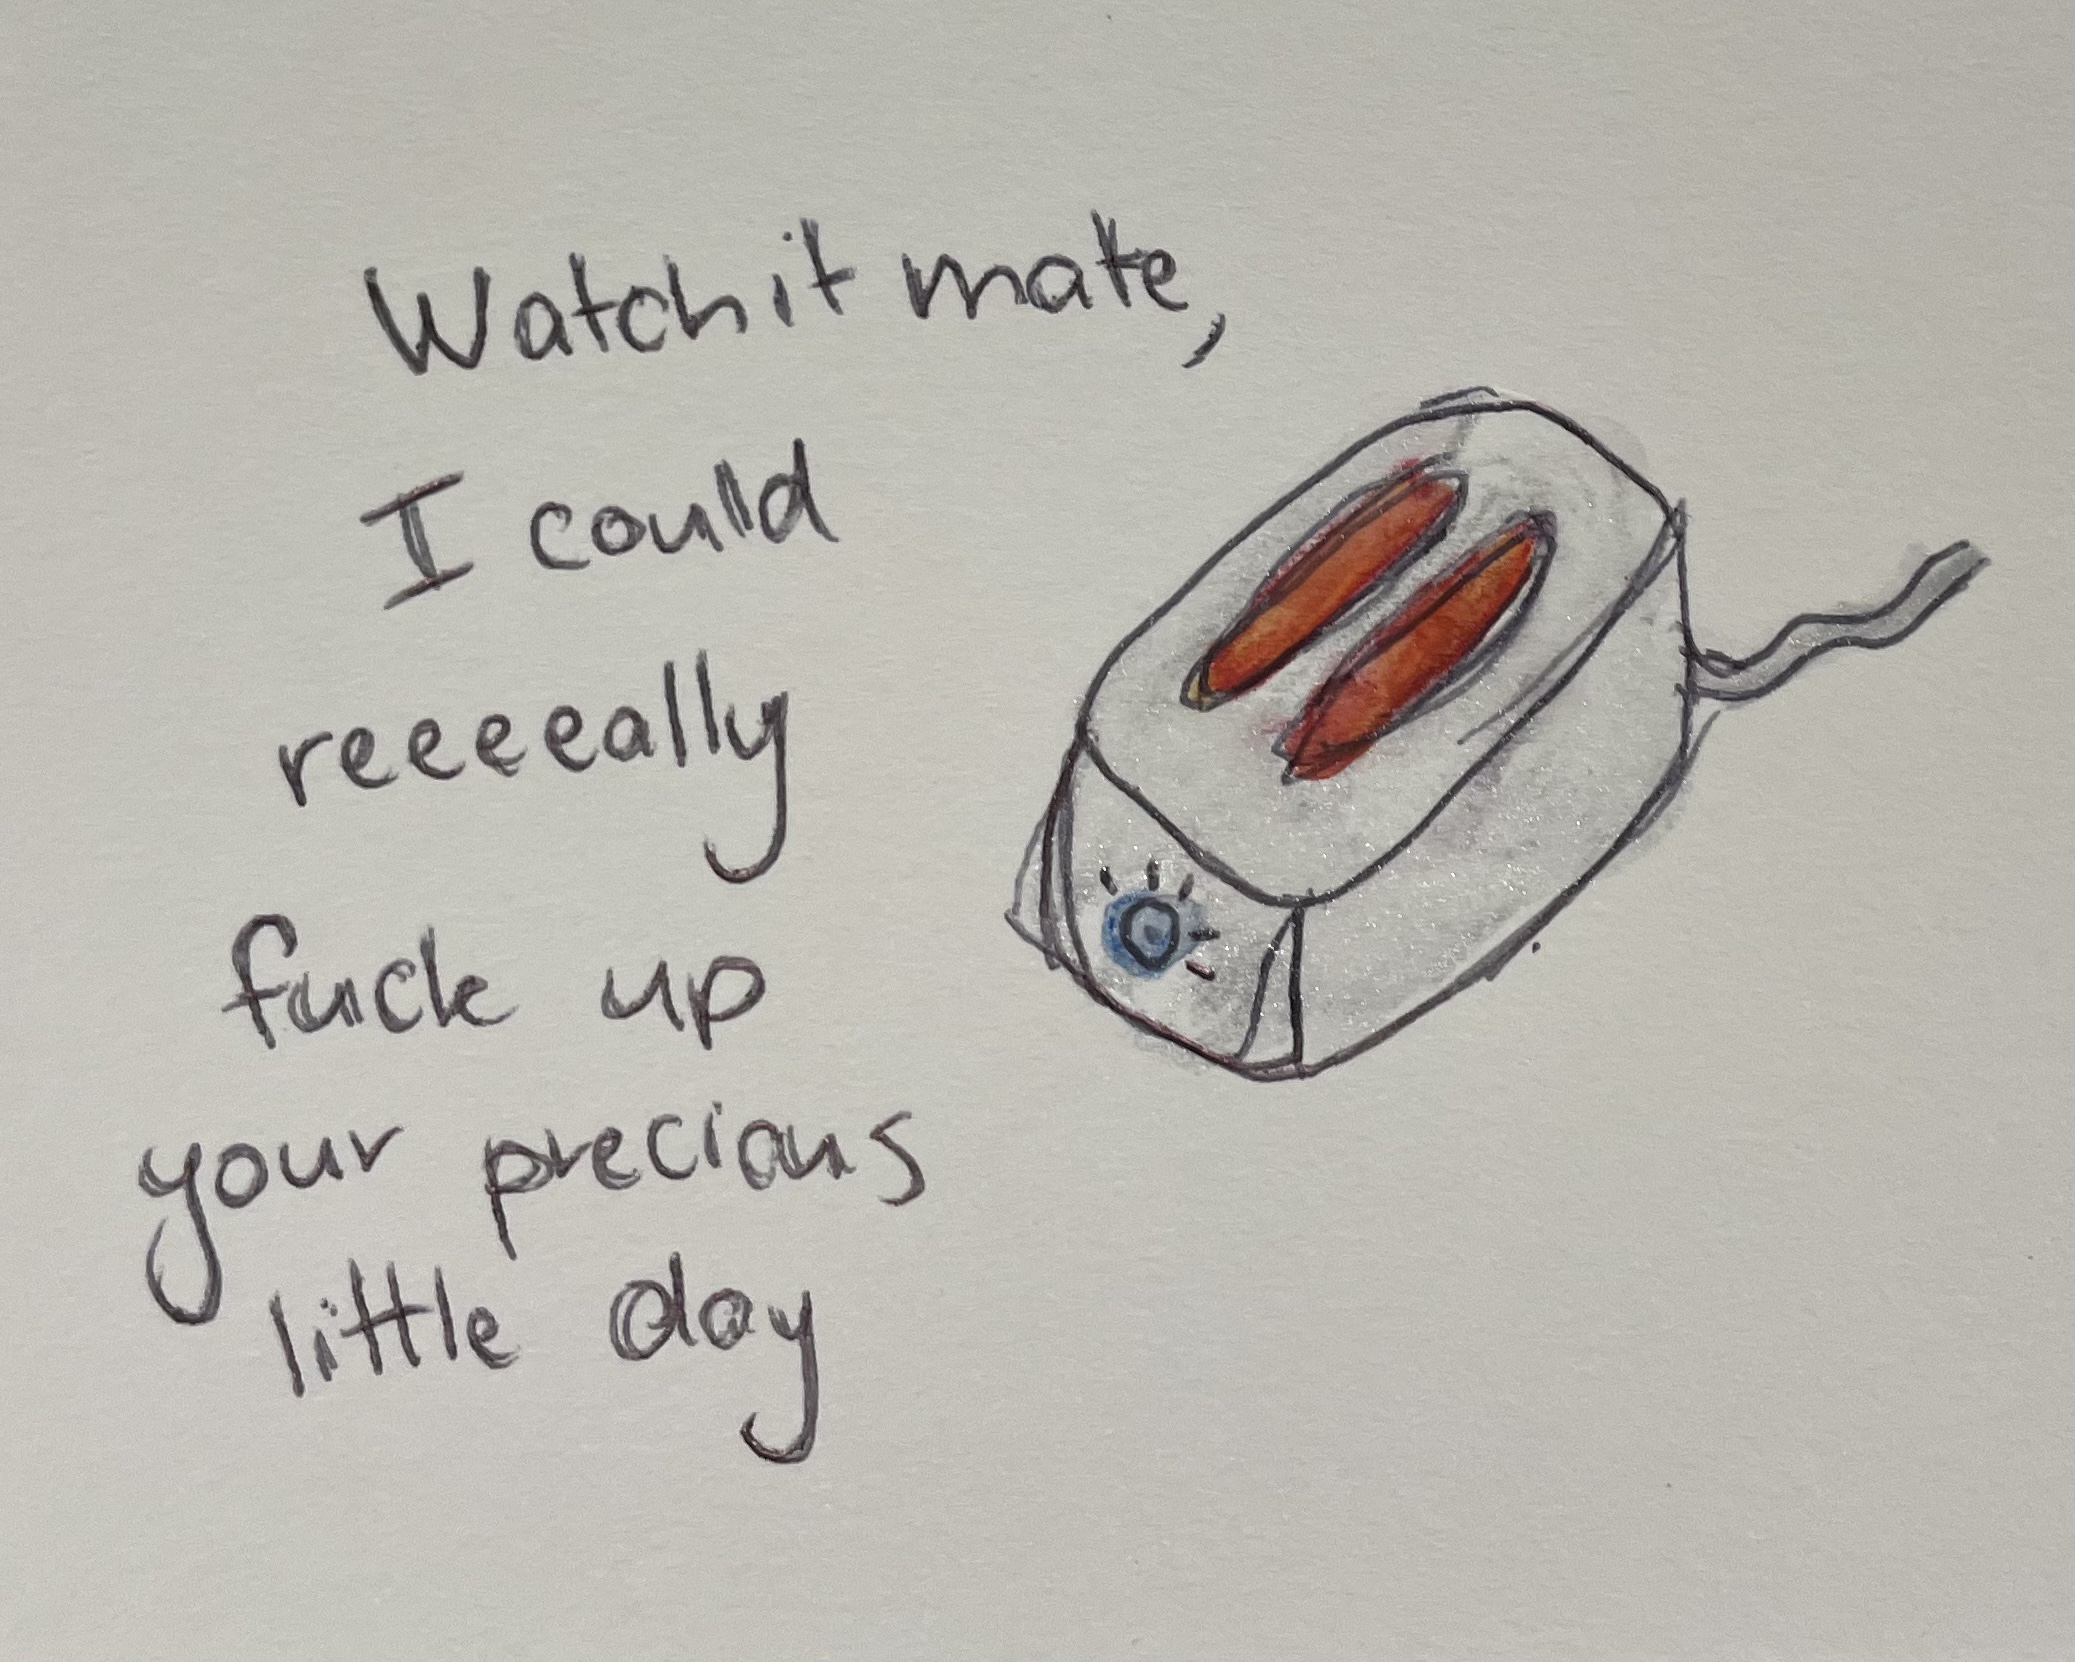 Watch it mate,
I could
reeeeally
fuck up
your precious
little day